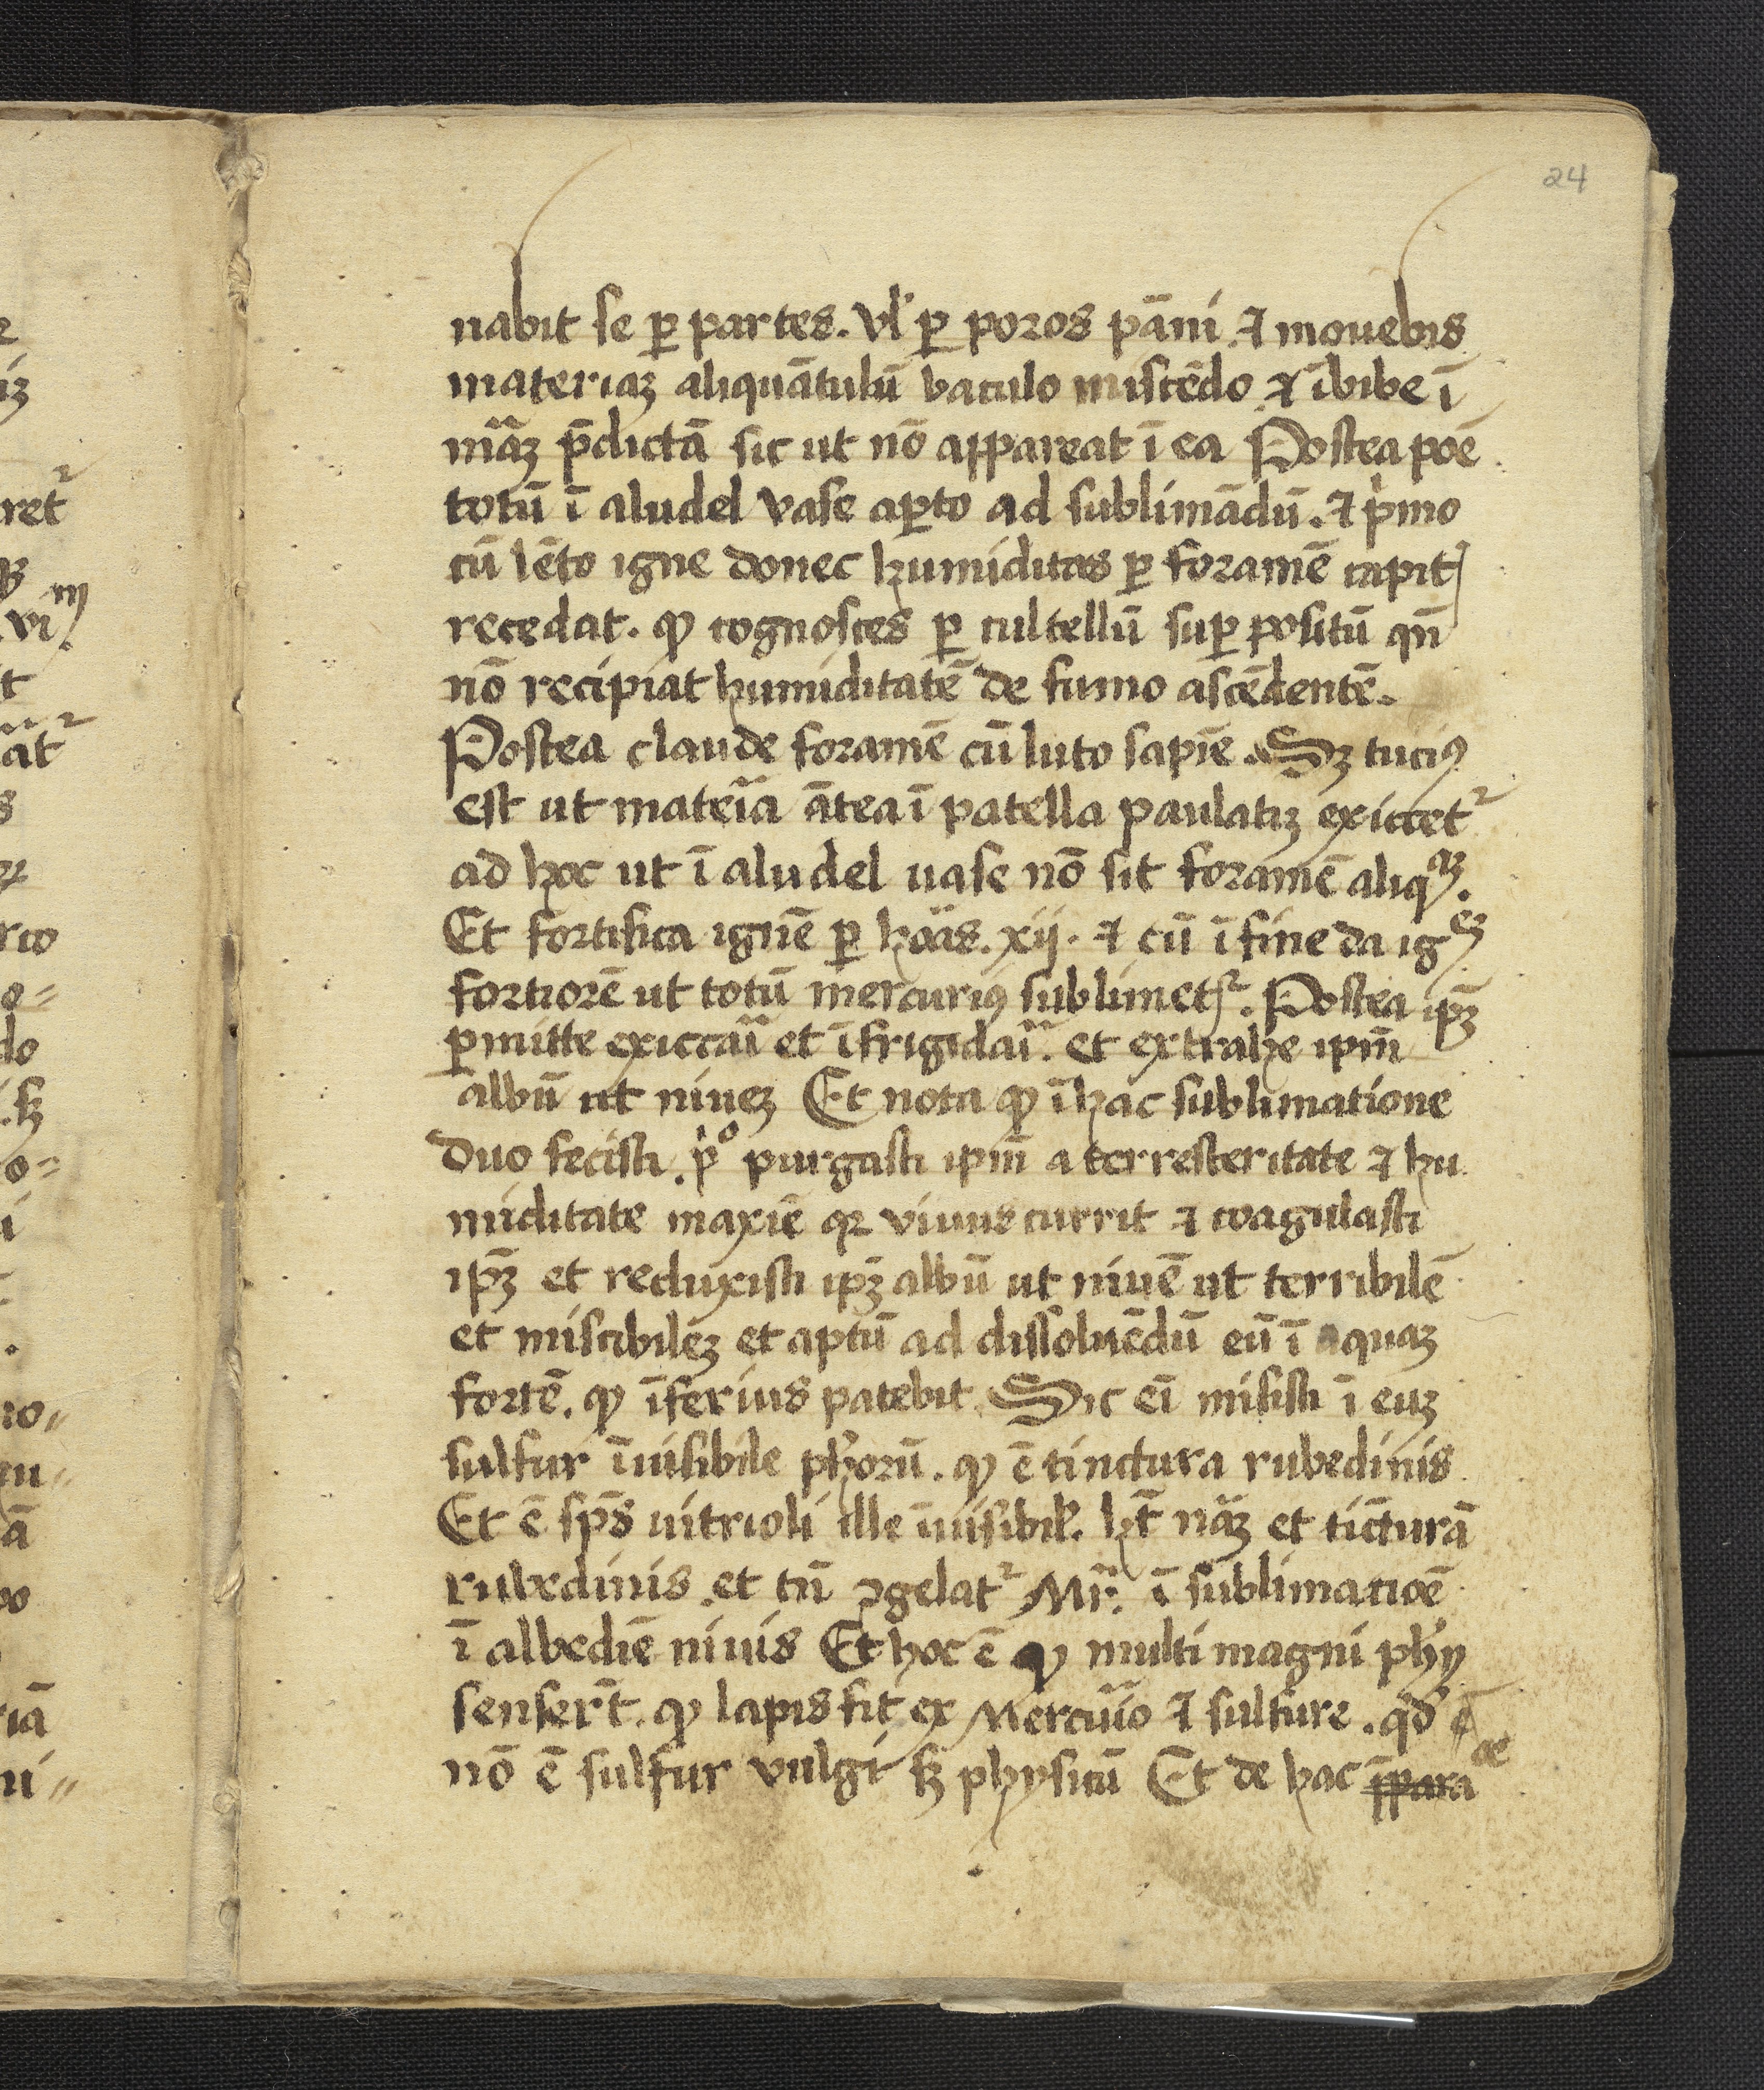 24
nabit se ꝑ partes. vl' ꝑ poros pāni ⁊ mouebis
materiaʒ aliquātulū baculo miscēdo ⁊ ībibe ī
māʒ p̄dictā sic ut nō appareat ī ea Postea poē
totū ī aludel vase aꝑto ad sublimādū. ⁊ pͥmo
cū lēto igne donec humiditas ꝑ foramē capitꝭ
recedat. ꝙ cognosces ꝑ cultellū suꝑ positū qn̄
nō recipiat humiditatē de fumo ascēdentē.
Postea claude foramē cū luto sapiē. Sʒ tuciꝰ
est ut mateīa ātea ī patella paulatiʒ exiccet᷑
ad hoc ut ī aludel uase nō sit foramē aliqᷓʒ.
Et fortifica ignē ꝑ hoās. xij. ⁊ cū ī fine da igᵉʒ
fortiorē ut totū mercuriꝰ sublimet᷑. Postea ipʒ̄
ꝑmitte exiccaī et īfrigidaī. et extrahe ipm̄
albū ut niueʒ Et nota ꝙ ī hac sublimatione
duo fecisti. pͥº purgasti ipm̄ a terresteritate ⁊ hu
miditate maxiē qꝛ viuus currit ⁊ coagulasti
ipʒ̄ et reduxisti ipʒ̄ albū ut niuē ut terribilē
et miscibileʒ et aptū ad dissoluēdū eū ī aquaʒ
fortē. ꝙ īferius patebit. Sic eī misisti ī euʒ
sulfur īuisibile ph̄orū. ꝙ ē tinctura rubedinis
Et ē sp̄s uitrioli ille īuisibil'. ht̄ nāʒ et tīcturā
rubedinis. et tū ꝯgelat᷑ Mr̄. ī sublimatioē
ī albediē niuis Et hoc ē ꝙ multi magni ph'y
senser̄t. ꝙ lapis fit ex Mercuīo ⁊ sulfure. qd'
nō ē sulfur vulgi sʒ physicū Et de hac p̄para